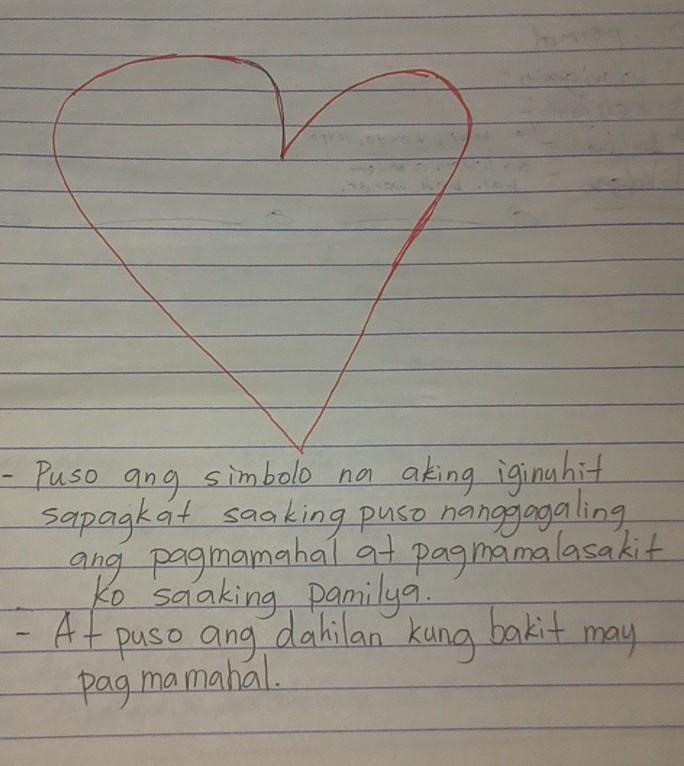 - Puso ang simbolo na aking iginuhit
sapagkat saaking puso nanggagaling
ang pagmamahal at pagmamalasakit
ko saaking pamilya.
- At puso ang dahilan kung bakit may
pagmamahal.